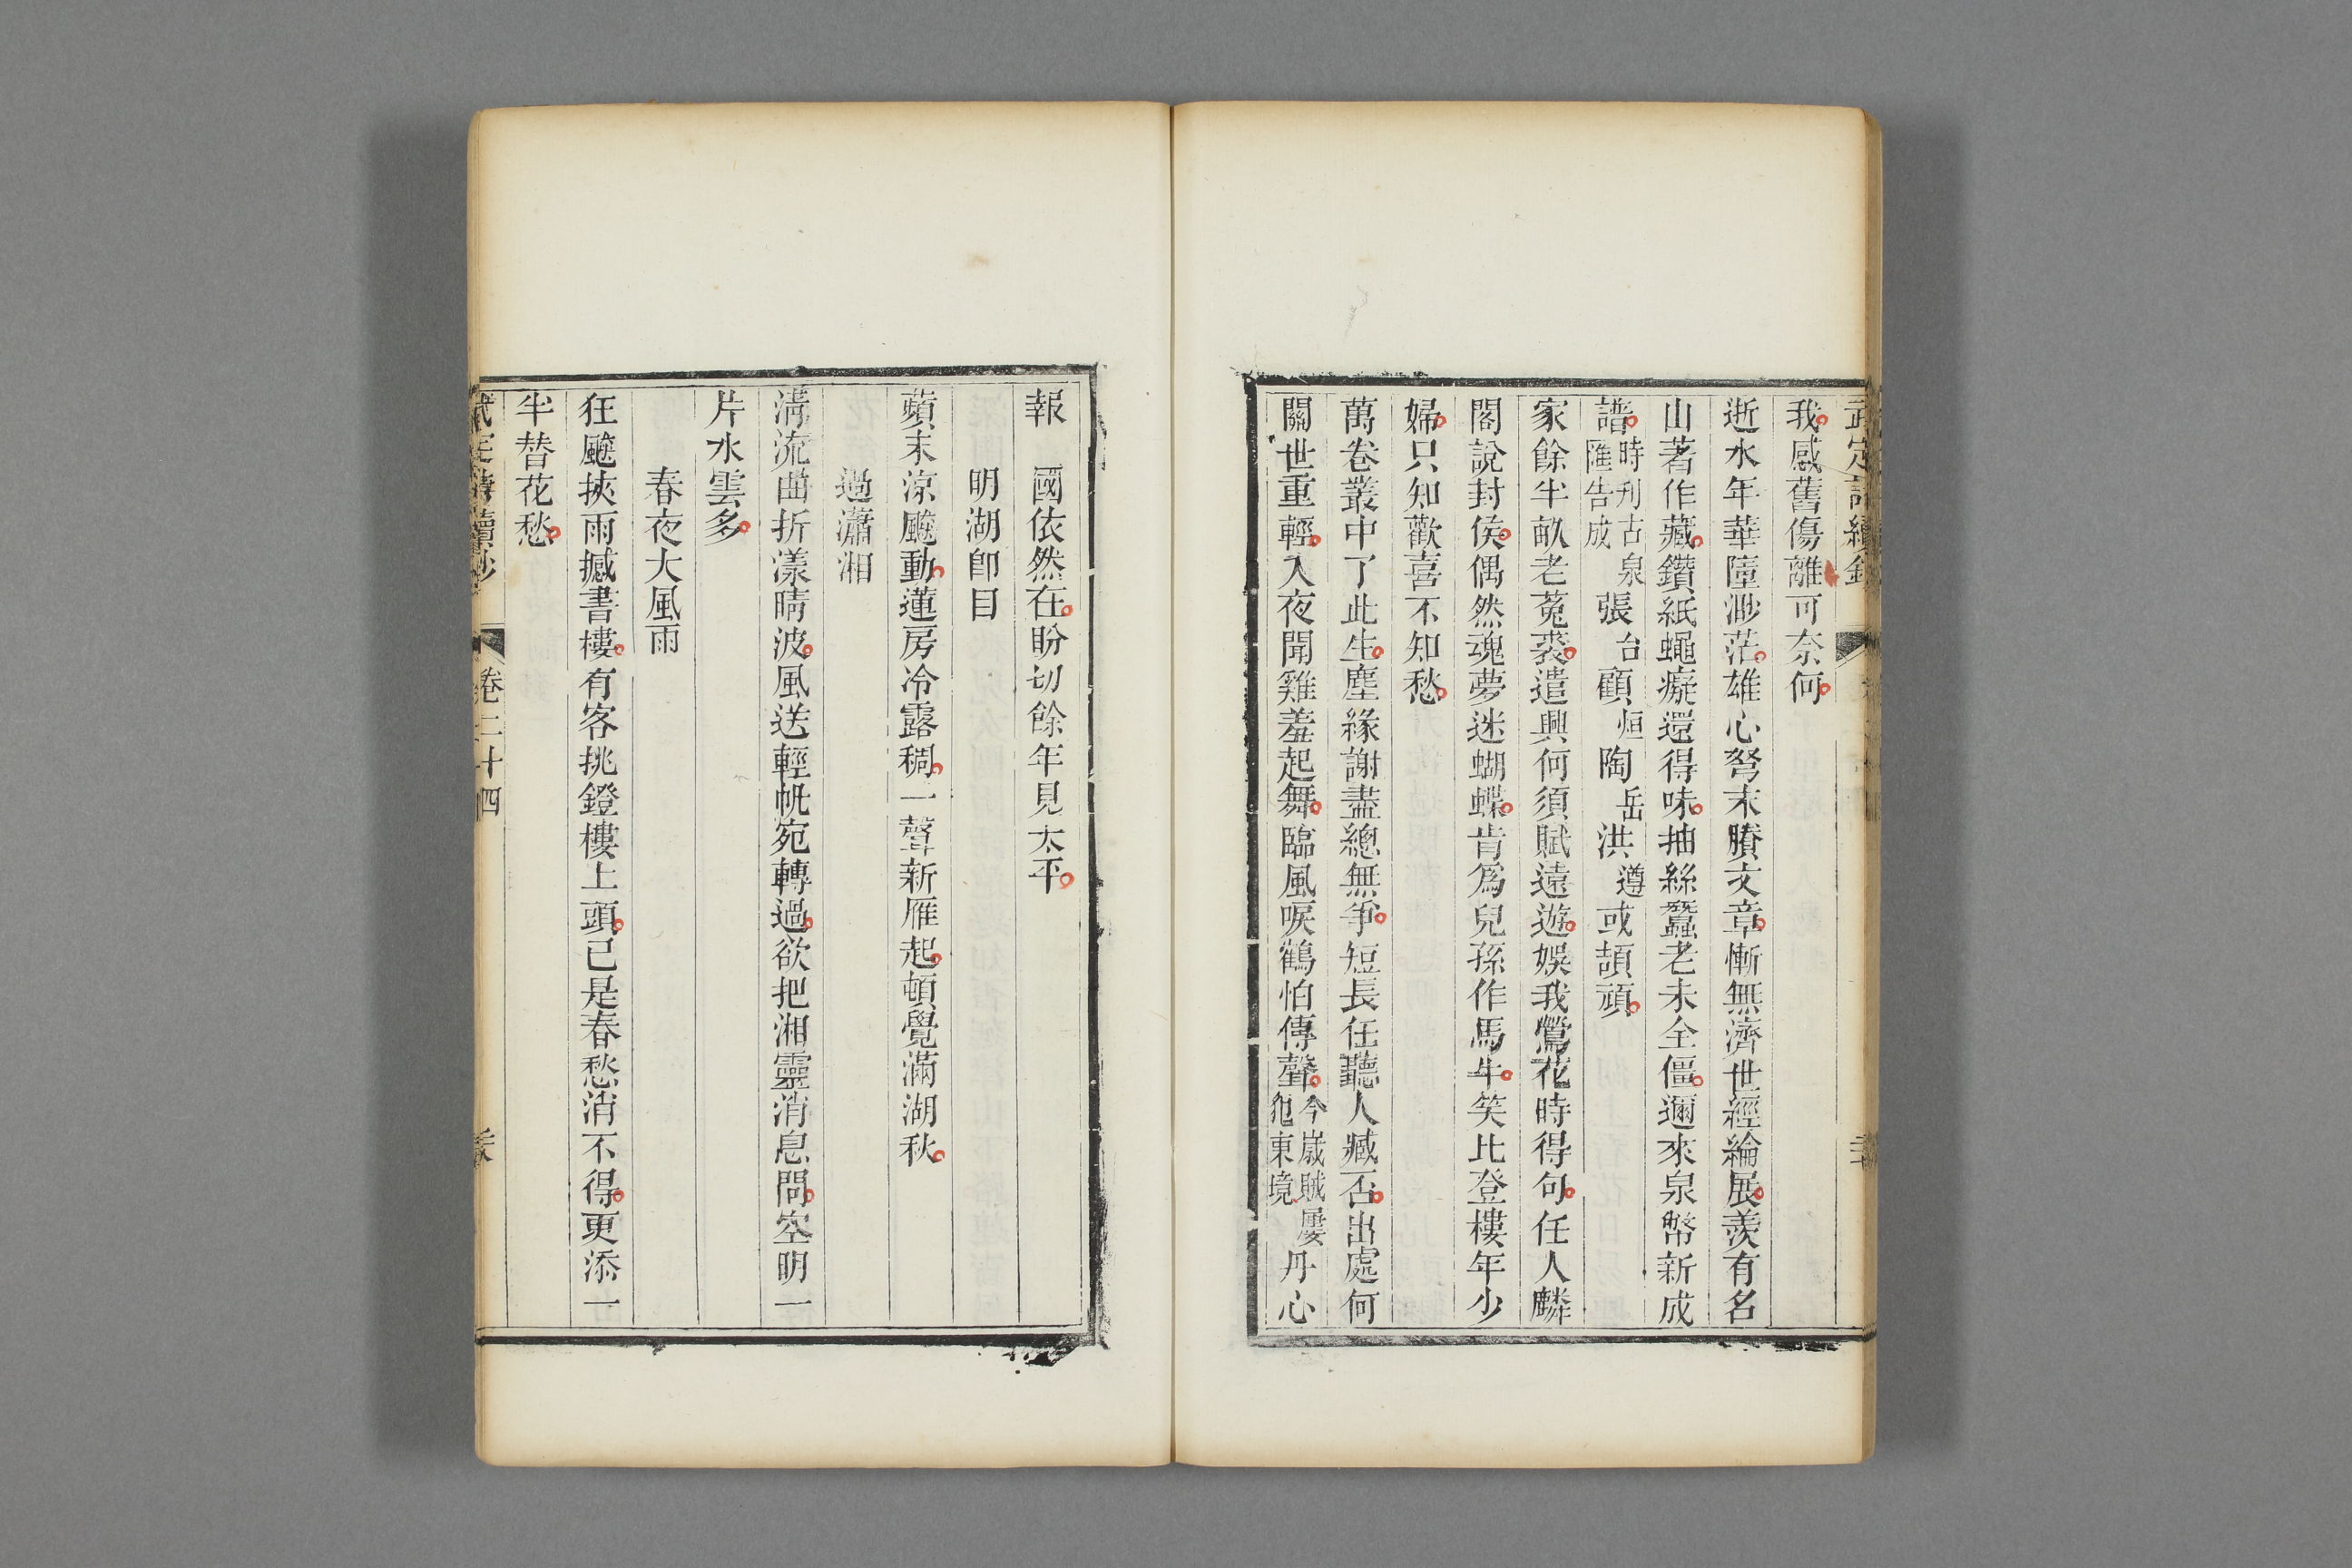 武定詩續鈔
我感舊傷離可奈何
逝水年華障渺茫雄心弩末賸文章慚無濟世經綸展羨有名
山著作藏鑽紙蠅癡還得味抽絲蠶老未全僵邇來泉幣新成
譜時刋古泉匯告成張台顧烜陶岳洪遵或頡頏
家餘半畝老菟裘遣興何須賦遠遊娛我鶯花時得句任人麟
閣說封侯偶然魂夢迷蝴蝶肯爲兒孫作馬牛笑比登樓年少
婦只知歡喜不知愁
萬卷叢中了此生塵緣謝盡總無爭短長任聽人臧否出處何
關世重輕入夜聞雞羞起舞臨風唳鶴怕傳聲今嵗賊屢犯東境丹心
報國依然在盼切餘年見太平
明湖卽目
蘋末涼颸動蓮房冷露稠一聲新雁起頓覺滿湖秋
過瀟湘
淸流曲折漾晴波風送輕帆宛轉過欲把湘靈消息問空明一
片水雲多
春夜大風雨
狂颸挾雨撼書樓有客挑鐙樓上頭已是春愁消不得更添一
半替花愁
武定詩續鈔
卷二十四